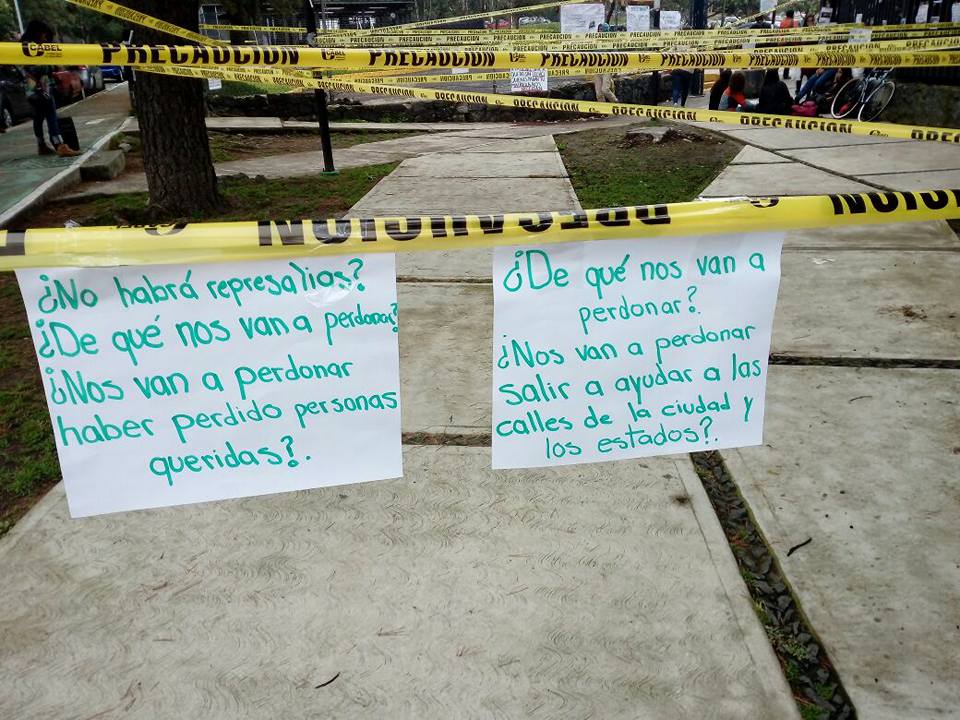 CABEL PRECAUCION PRECAUCION PRECAUCION
PRECAUCION
¿No habrá represalias?
¿De qué nos van a perdonar?
¿Nos van a perdonar
haber perdido personas
queridas?.
¿De qué nos van a
perdonar?.
¿Nos van a perdonar
salir a ayudar a las
calles de la ciudad y
los estados?.